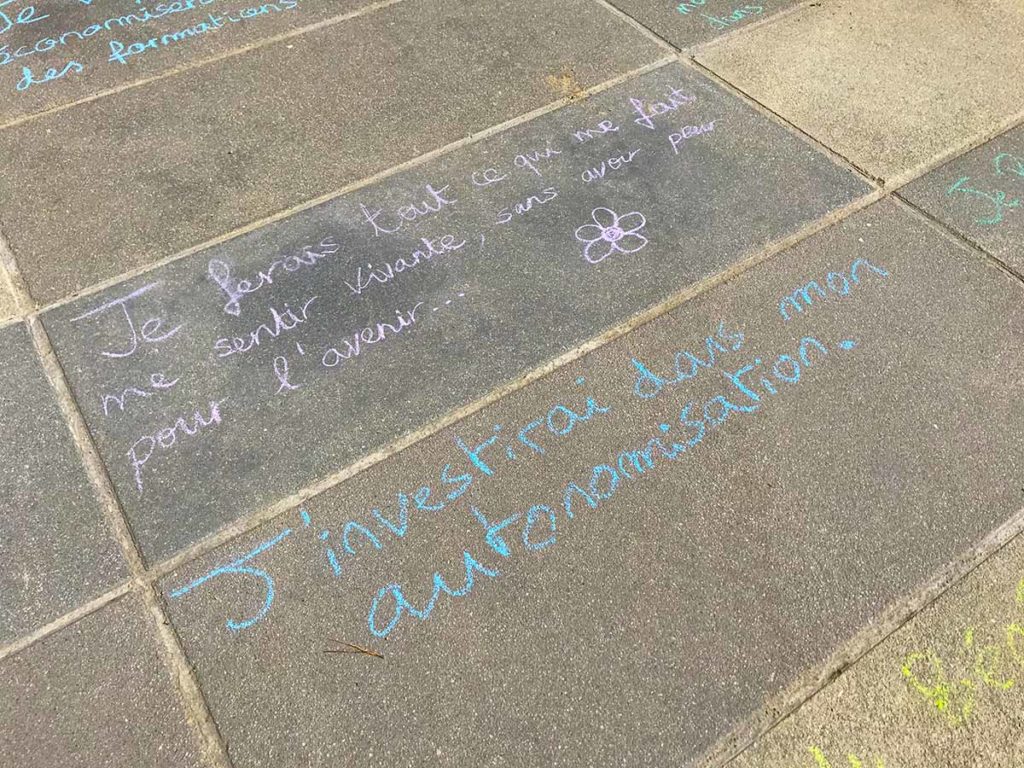 Je
économiser
des formations
dans
Je ferais tout ce qui me fait
me sentir vivante, sans avoir peur
pour l'avenir...
J'investirai dans mon
autonomisation.